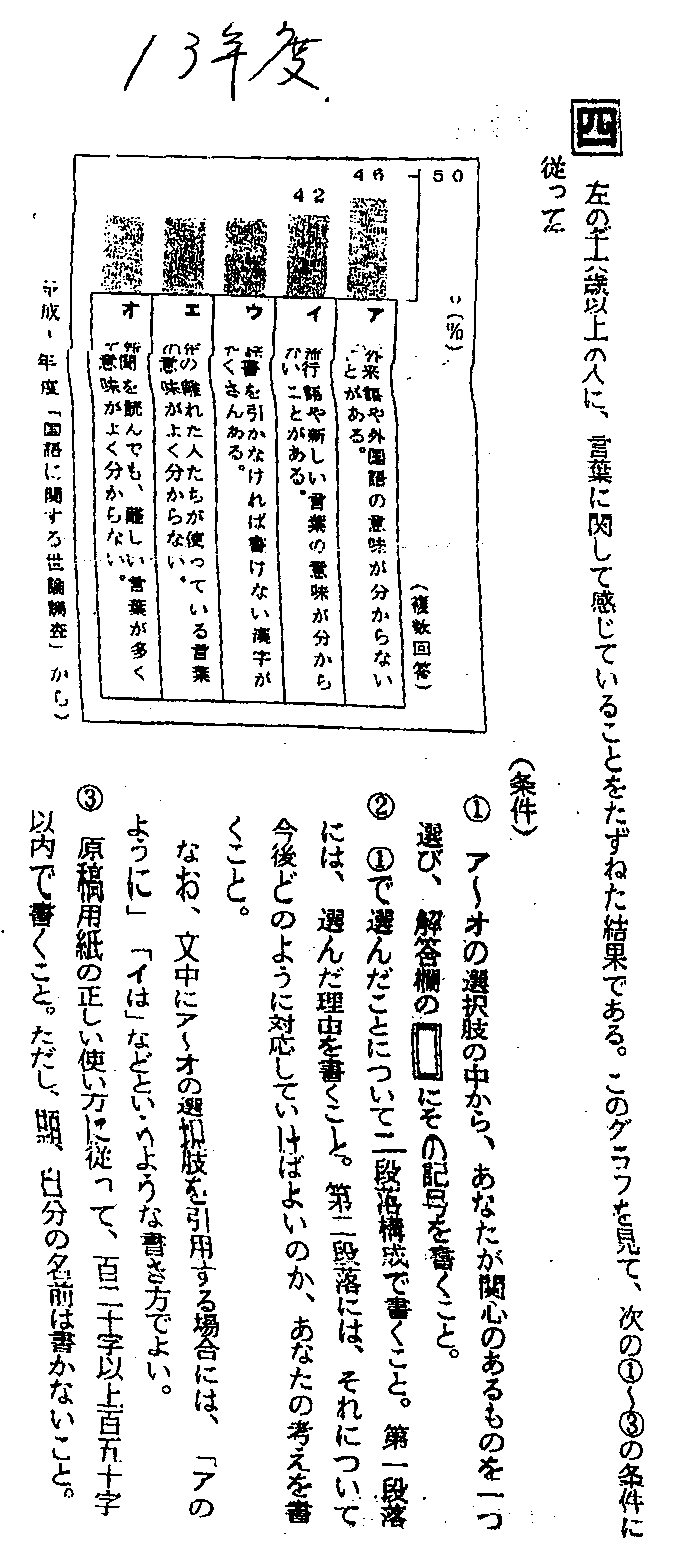 13年度
四
左の　十六歳以上の人に、言葉に関して感じていることをたずねた結果である。このグラフを見て、次の①〜③の条件に
従って
50
(%)
46
42
(複数回答)
ア 外来語や外国語の意味が分からない
ことがある。
イ 流行語や新しい言葉の意味が分から
ないことがある。
ウ 辞書を引かなければ書けない漢字が
たくさんある。
エ の離れた人たちが使っている言葉
の意味がよく分からない。
オ 新聞を読んでも、難しい言葉が多く
て意味がよく分からない。
平成 年度「国語に関する世論調査」から)
(条件)
① ア〜オの選択肢の中から、あなたが関心のあるものを一つ
選び、解答欄の□にその記号を書くこと。
② ①で選んだことについて二段落構成で書くこと。第一段落
には、選んだ理由を書くこと。第二段落には、それについて
今後どのように対応していけばよいのか、あなたの考えを書
くこと。
なお、文中にア〜オの選択肢を引用する場合には、「アの
ように」「イは」などというような書き方でよい。
③ 原稿用紙の正しい使い方に従って、百二十字以上百五十字
以内で書くこと。ただし、題、自分の名前は書かないこと。